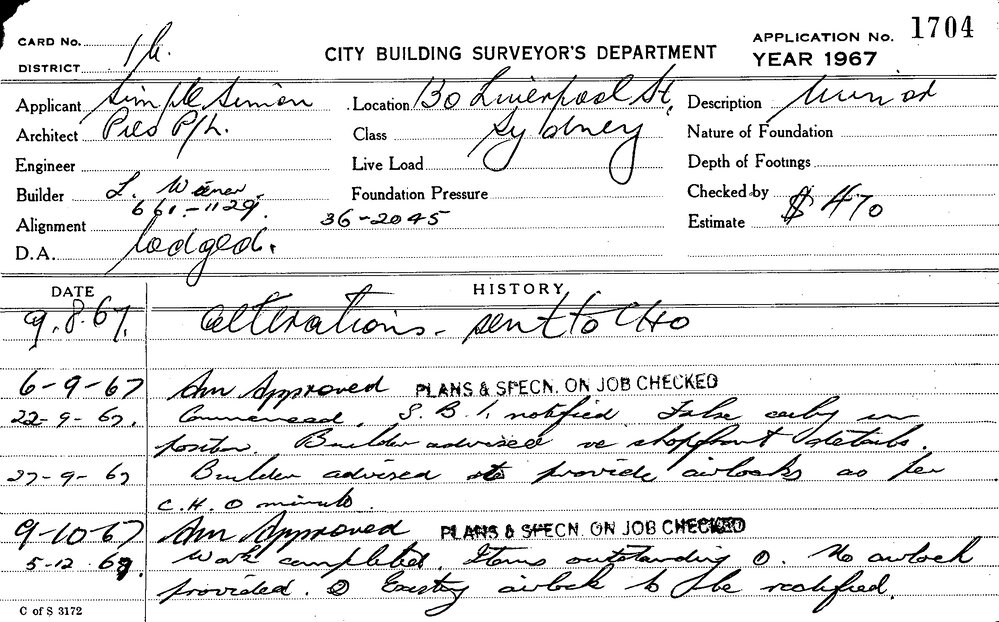 CARD No. 1h. CITY BUILDING SURVEYOR'S DEPARTMENT APPLICATION No. 1704
DISTRICT YEAR 1967
Applicant Simple Simon Location 130 Liverpool St, Description Minor
Architect Pies P/L. Class Sydney Nature of Foundation
Engineer Live Load Depth of Footings
Builder L. Foundation Pressure Checked by
661-1129. 36-2045 $470
Alignment Estimate
D.A. lodged.
DATE HISTORY
9.8.67. alterations - sent to CHO
6-9-67 Am Approved PLANS & SPECN. ON JOB CHECKED
22-9-67. Commenced. S.B.I. notified False ceiling in
position. Builder advised re shopfront details.
27-9-67 Builder advised to provide airlocks as per
C.H.O minute.
9-10-67 Am Approved PLANS & SPECN. ON JOB CHECKED
5-12-67. Work completed. Items outstanding ①. No airlock
provided. ② Existing airlock to be rectified.
C of S 3172